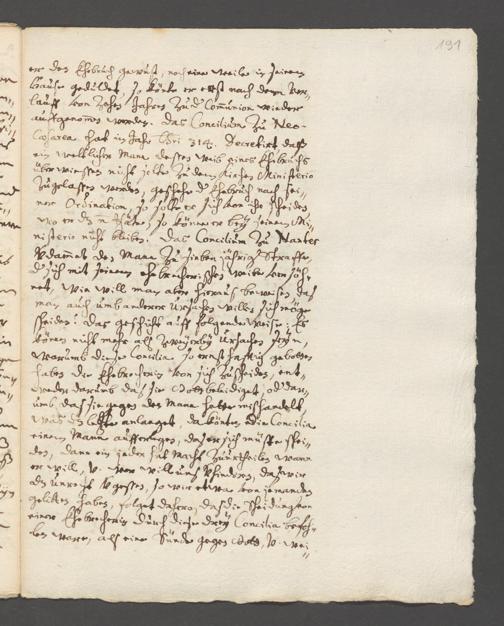 191
er den Ehebruch gewust, noch eine weile in seinem
Hause geduldet, so könte er erst nach dem Ver„
lauff von Zehen Jahren zu d Com̄union wieder
auffgenom̄en werden. Das Concilium zu Neo-
Caesarea hat im Jahr Chri 314. Decretirt daß
ein weltlicher Mann dessen weib eines Ehebruchs
überwiesen nicht solte zu dem Kirchen Ministerio
zugelassen werden, geschehe d Ehebruch nach sei„
ner Ordination, so solte er sich von ihr scheiden
wo er d n thäte, so könne er bey seinem Mi„
nisterio nicht bleiben. Das Concilium zu Nantes
verdamt den Mann zu sieben jähriger Straffe,
d sich mit seinem ehebrecherischen weibe versöh„
net, Wie will man aber hieraus beweisen, daß
man auch umb anderer Ursachen willen sich möge
scheiden? Das geschicht auff folgende weise: Es
können nicht mehr als zweyerley Ursachen seyn,
warumb diese Concilia so ernsthafftig geboten
haben die Ehebrecherin von sich zu scheiden, ent„
weder darumb daß sie Gott beleidiget, od dar„
umb, daß sie gegen den Mann hette mishandelt,
was d letzte anlanget, da könten die Concilia
einem Mann aufferlegen, daß er sich müste schei„
den, dann ein jeder hat Macht zu urtheilen wann
er will, v. wer will uns verhindern, daß wir
das unrecht vergessen, so wir etwa von jemanden
gelitten haben, folget dahero, daß die Scheidung von
einer Ehebrecherin durch diese drey Concilia befoh„
len ware, als eine Sünde gegen Gott, v. wei„